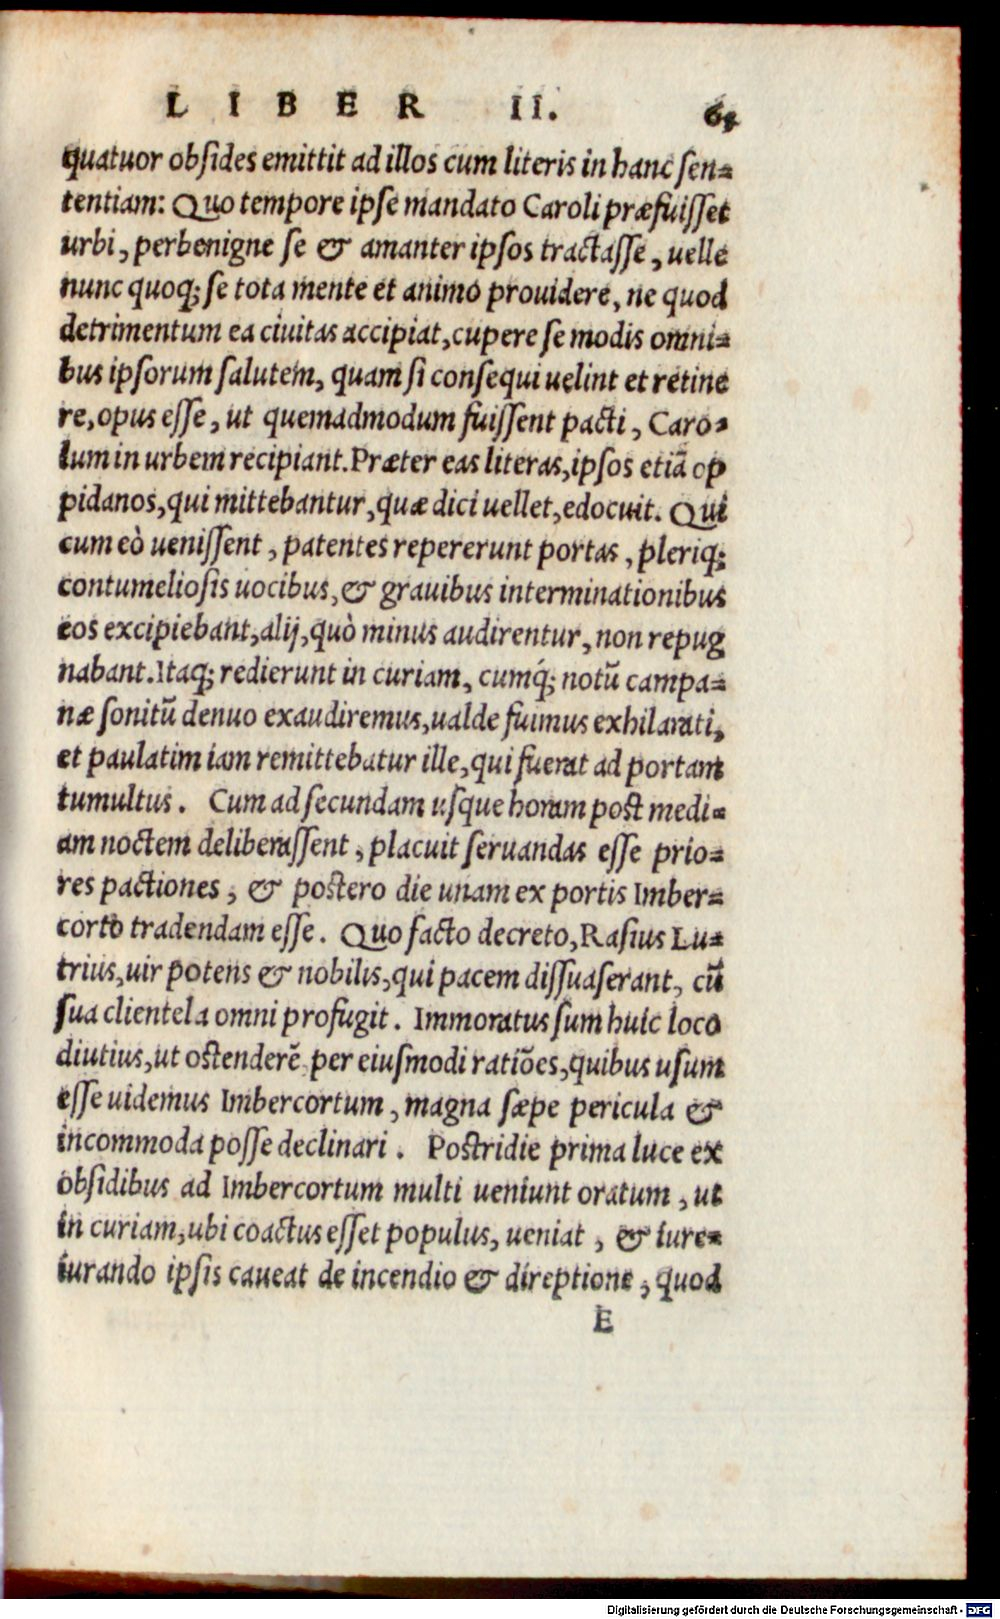 LIBER II. 64
quatuor obsides emittit ad illos cum literis in hanc sen-
tentiam: Quo tempore ipse mandato Caroli præfuisset
urbi, perbenigne se & amanter ipsos tractasse, uelle
nunc quoq; se tota mente et animo prouidere, ne quod
detrimentum ea ciuitas accipiat, cupere se modis omni-
bus ipsorum salutem, quam si consequi uelint et retine
re, opus esse, ut quemadmodum fuissent pacti, Caro-
lum in urbem recipiant. Præter eas literas, ipsos etiã op
pidanos, qui mittebantur, quæ dici uellet, edocuit. Qui
cum eò uenissent, patentes repererunt portas, pleriq;
contumeliosis uocibus, & grauibus interminationibus
eos excipiebant, alij, quò minus audirentur, non repug
nabant. Itaq; redierunt in curiam, cumq́; notũ campa-
næ sonitũ denuo exaudiremus, ualde fuimus exhilarati,
et paulatim iam remittebatur ille, qui fuerat ad portam
tumultus. Cum ad secundam usque horam post medi-
am noctem deliberassent, placuit seruandas esse prio-
res pactiones, & postero die unam ex portis Imber-
corto tradendam esse. Quo facto decreto, Rasius Lu-
trius, uir potens & nobilis, qui pacem dissuaserant, cũ
sua clientela omni profugit. Immoratus sum huic loco
diutius, ut ostenderẽ per eiusmodi ratiões, quibus usum
esse uidemus Imbercortum, magna sæpe pericula &
incommoda posse declinari. Postridie prima luce ex
obsidibus ad Imbercortum multi ueniunt oratum, ut
in curiam, ubi coactus esset populus, ueniat, & iure-
iurando ipsis caueat de incendio & direptione, quod
E
Digitalisierung gefördert durch die Deutsche Forschungsgemeinschaft - DFG